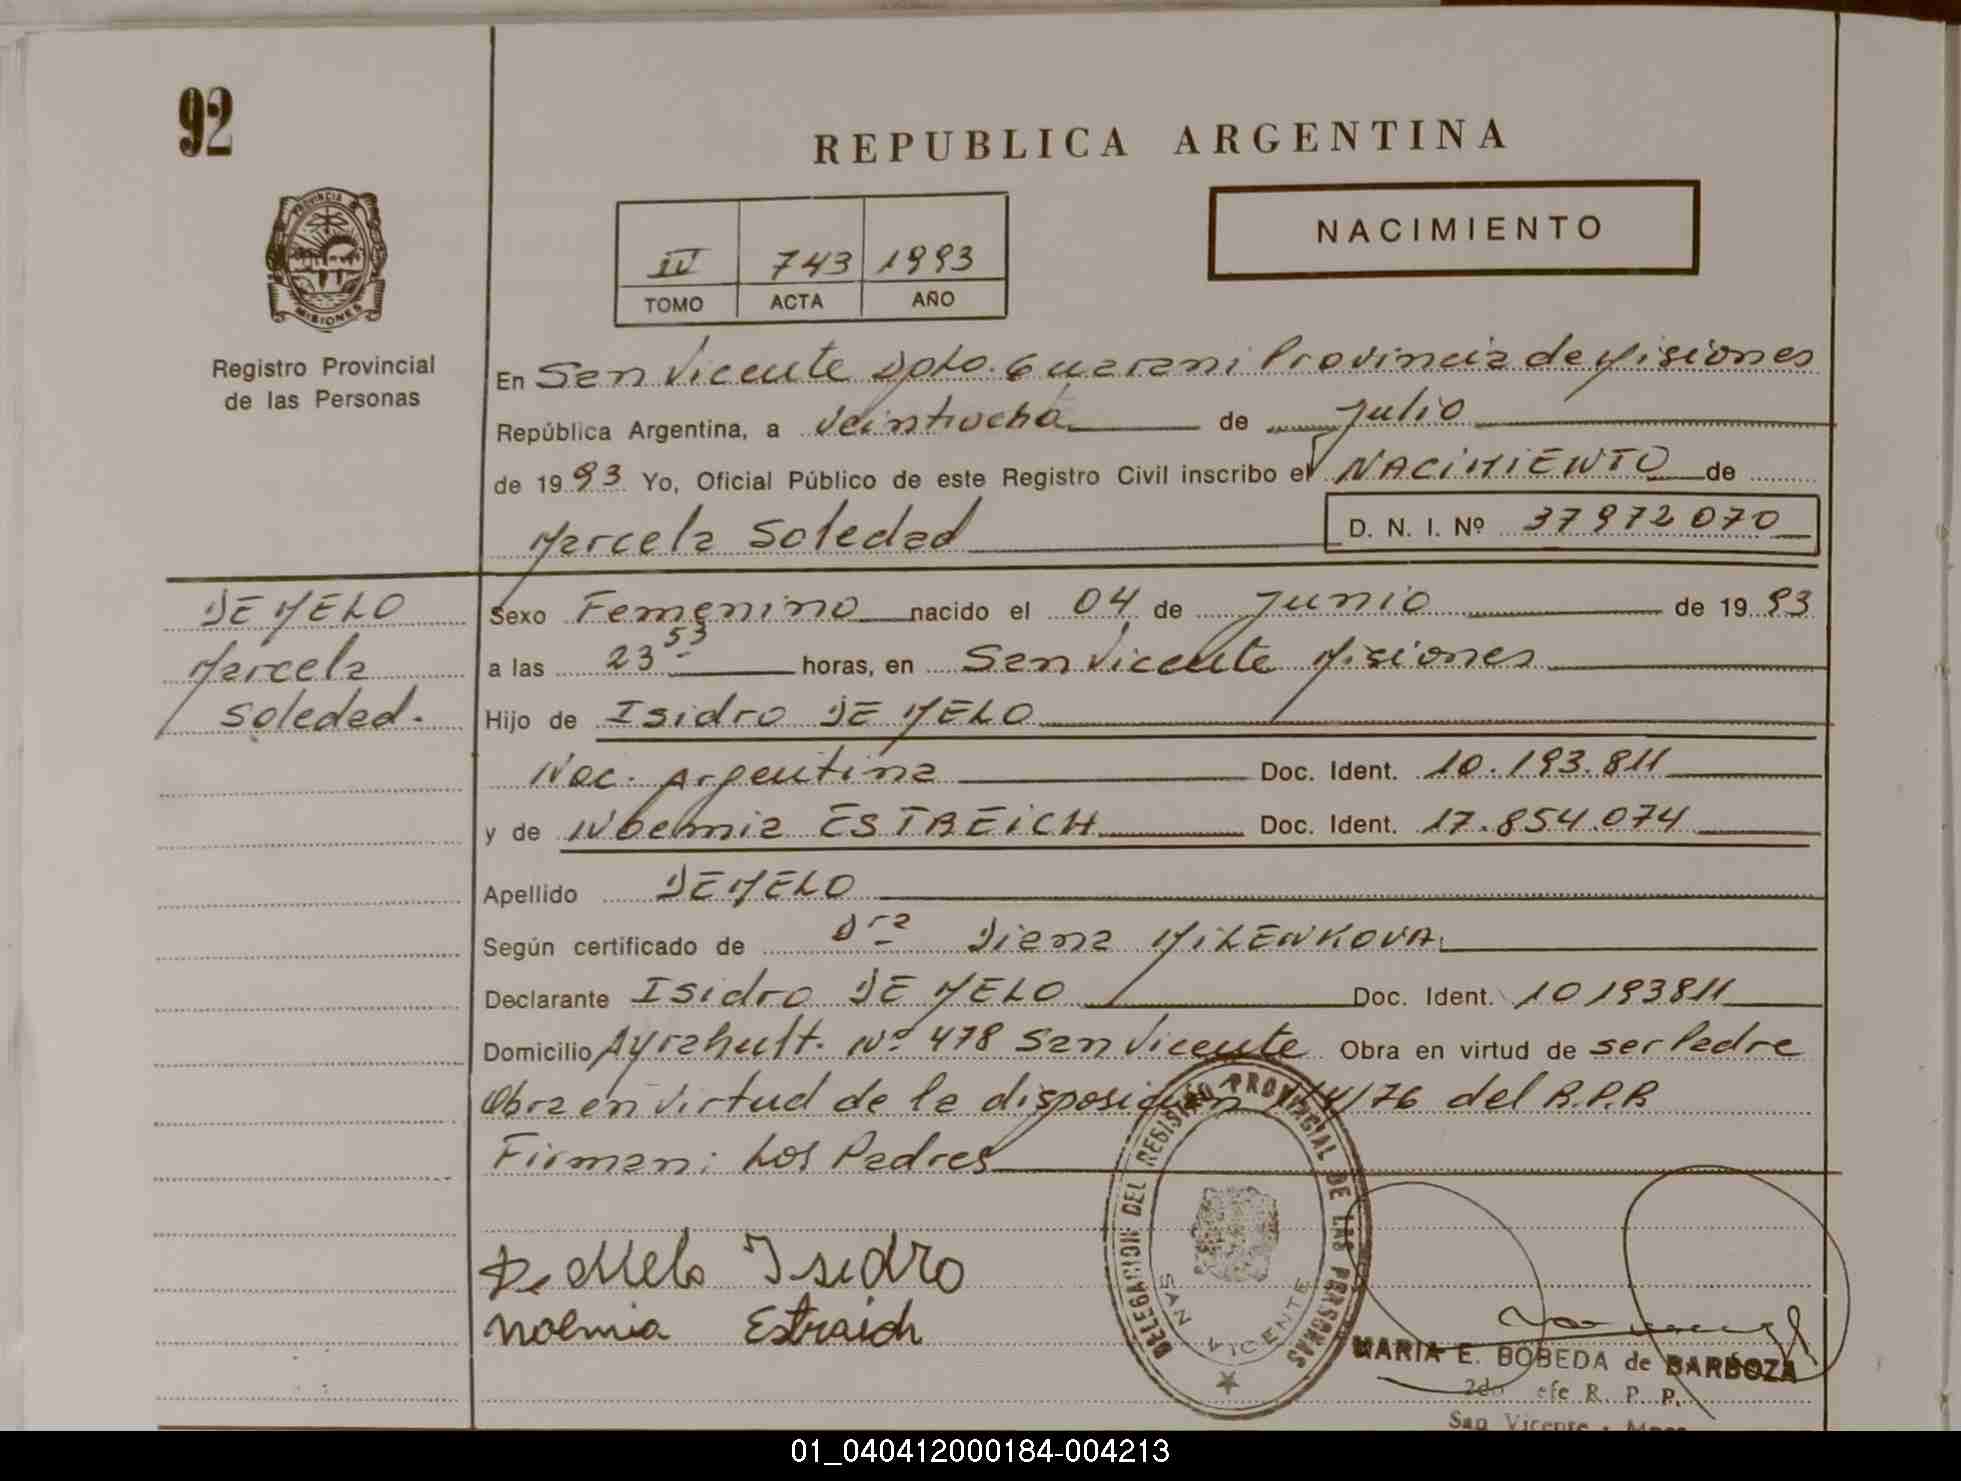 92
REPUBLICA ARGENTINA
PROVINCIA DE
MISIONES
Registro Provincial
de las Personas
IV 743 1993
TOMO ACTA AÑO
NACIMIENTO
En San Vicente Dpto. Guarani Provincia de Misiones
República Argentina, a veintiocho de Julio
de 1993 Yo, Oficial Público de este Registro Civil inscribo el NACIMIENTO de
Marcela Soledad D. N. I. Nº 37972070
DE MELO
Marcela
Soledad.
Sexo Femenino nacido el 04 de Junio de 1993
a las 23 53 horas, en San Vicente Misiones
Hijo de Isidro DE MELO
Nac. Argentina Doc. Ident. 10.193.811
y de Noemia ESTREICH Doc. Ident. 17.854.074
Apellido DE MELO
Según certificado de Dra Diana MILENKOVA
Declarante Isidro DE MELO Doc. Ident. 10193811
Domicilio Ayrahult. Nº 478 San Vicente Obra en virtud de ser Padre
Obra en virtud de la disposicion /76 del R.P.P.
Firman: Los Padres
De Melo Isidro
Noemia Estraich
DELEGACION DEL REGISTRO PROVINCIAL DE LAS PERSONAS
SAN VICENTE
MARIA E. BOBEDA de BARBOZA
2do efe R. P. P.
San Vicente -
01_040412000184-004213